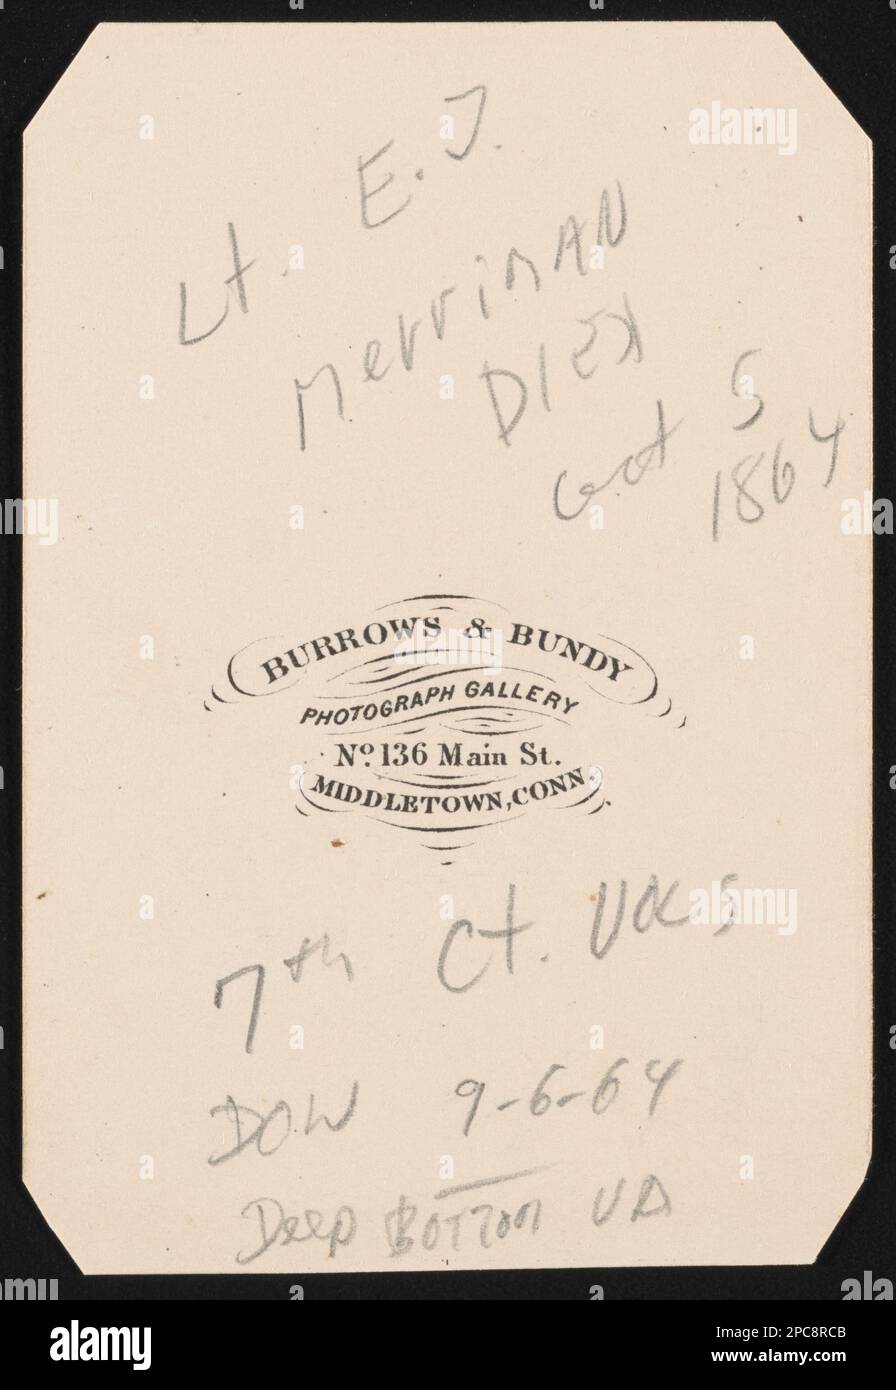 Lt. E. J.
Merriman
Died
Oct 5
1864
BURROWS & BUNDY
PHOTOGRAPH GALLERY
No. 136 Main St.
MIDDLETOWN, CONN.
7th Ct. Vols
DOW 9-6-64
Deep Bottom VA
alamy
Image ID: 2PC8RCB
www.alamy.com